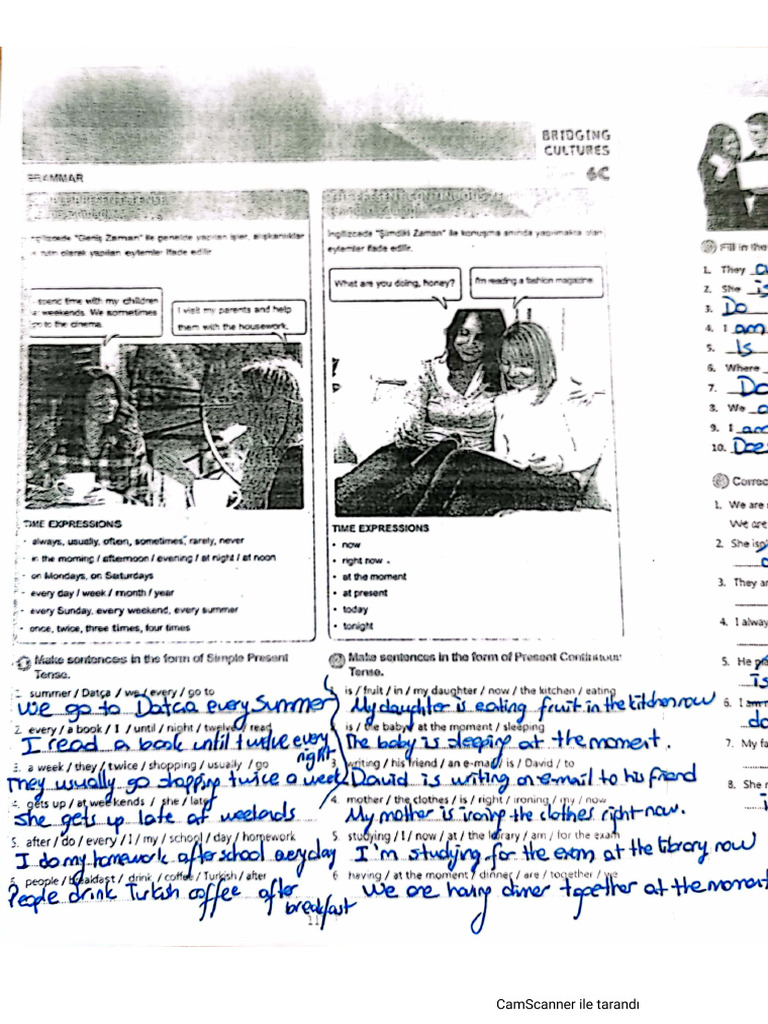 BRIDGING
CULTURES
6C
GRAMMAR
"Geniş Zaman" ile genelde yapılan işler, alışkanlıklar
rutin olarak yapılan eylemler ifade edilir.
spend time with my children
weekends. We sometimes
go to the cinema.
I visit my parents and help
them with the housework.
TIME EXPRESSIONS
- always, usually, often, sometimes, rarely, never
- in the morning / afternoon / evening / at night / at noon
- on Mondays, on Saturdays
- every day / week / month / year
- every Sunday, every weekend, every summer
- once, twice, three times, four times
Make sentences in the form of Simple Present
Tense.
1. summer / Datça / we / every / go to
We go to Datça every Summer
2. every / a book / I / until / night / twelve / read
I read a book until twelve every
night.
3. a week / they / twice / shopping / usually / go
They usually go shopping twice a week
4. gets up / at weekends / she / late
She gets up late at weekends
5. after / do / every / I / my / school / day / homework
I do my homework after school everyday
people / breakfast / drink / coffee / Turkish / after
People drink Turkish coffee after
breakfast
11
PRESENT CONTINUOUS
İngilizcede "Şimdiki Zaman" ile konuşma anında yapılmakta olan
eylemler ifade edilir.
What are you doing, honey?
I'm reading a fashion magazine.
TIME EXPRESSIONS
• now
• right now .
• at the moment
• at present
• today
• tonight
Make sentences in the form of Present Continuous
Tense.
is / fruit / in / my daughter / now / the kitchen / eating
My daughter is eating fruit in the kitchen now
is / the baby / at the moment / sleeping
The baby is sleeping at the moment.
3. writing / his friend / an e-mail / is / David / to
David is writing an e-mail to his friend
4. mother / the clothes / is / right / ironing / my / now
My mother is ironing the clothes right now.
5. studying / I / now / at / the library / am / for the exam
I'm studying for the exam at the library now
6 having / at the moment / dinner / are / together / we
We are having dinner together at the moment
Fill in the
1. They
2. She is
3. Do
4. I am
5. Is
6. Where
7. Do
8. We
9. I am
10. Does
Correc
1. We are
We are
2. She isn
3. They ar
4. I alway
5. He
is
6. I am
do
7. My fa
8. She
CamScanner ile tarandı